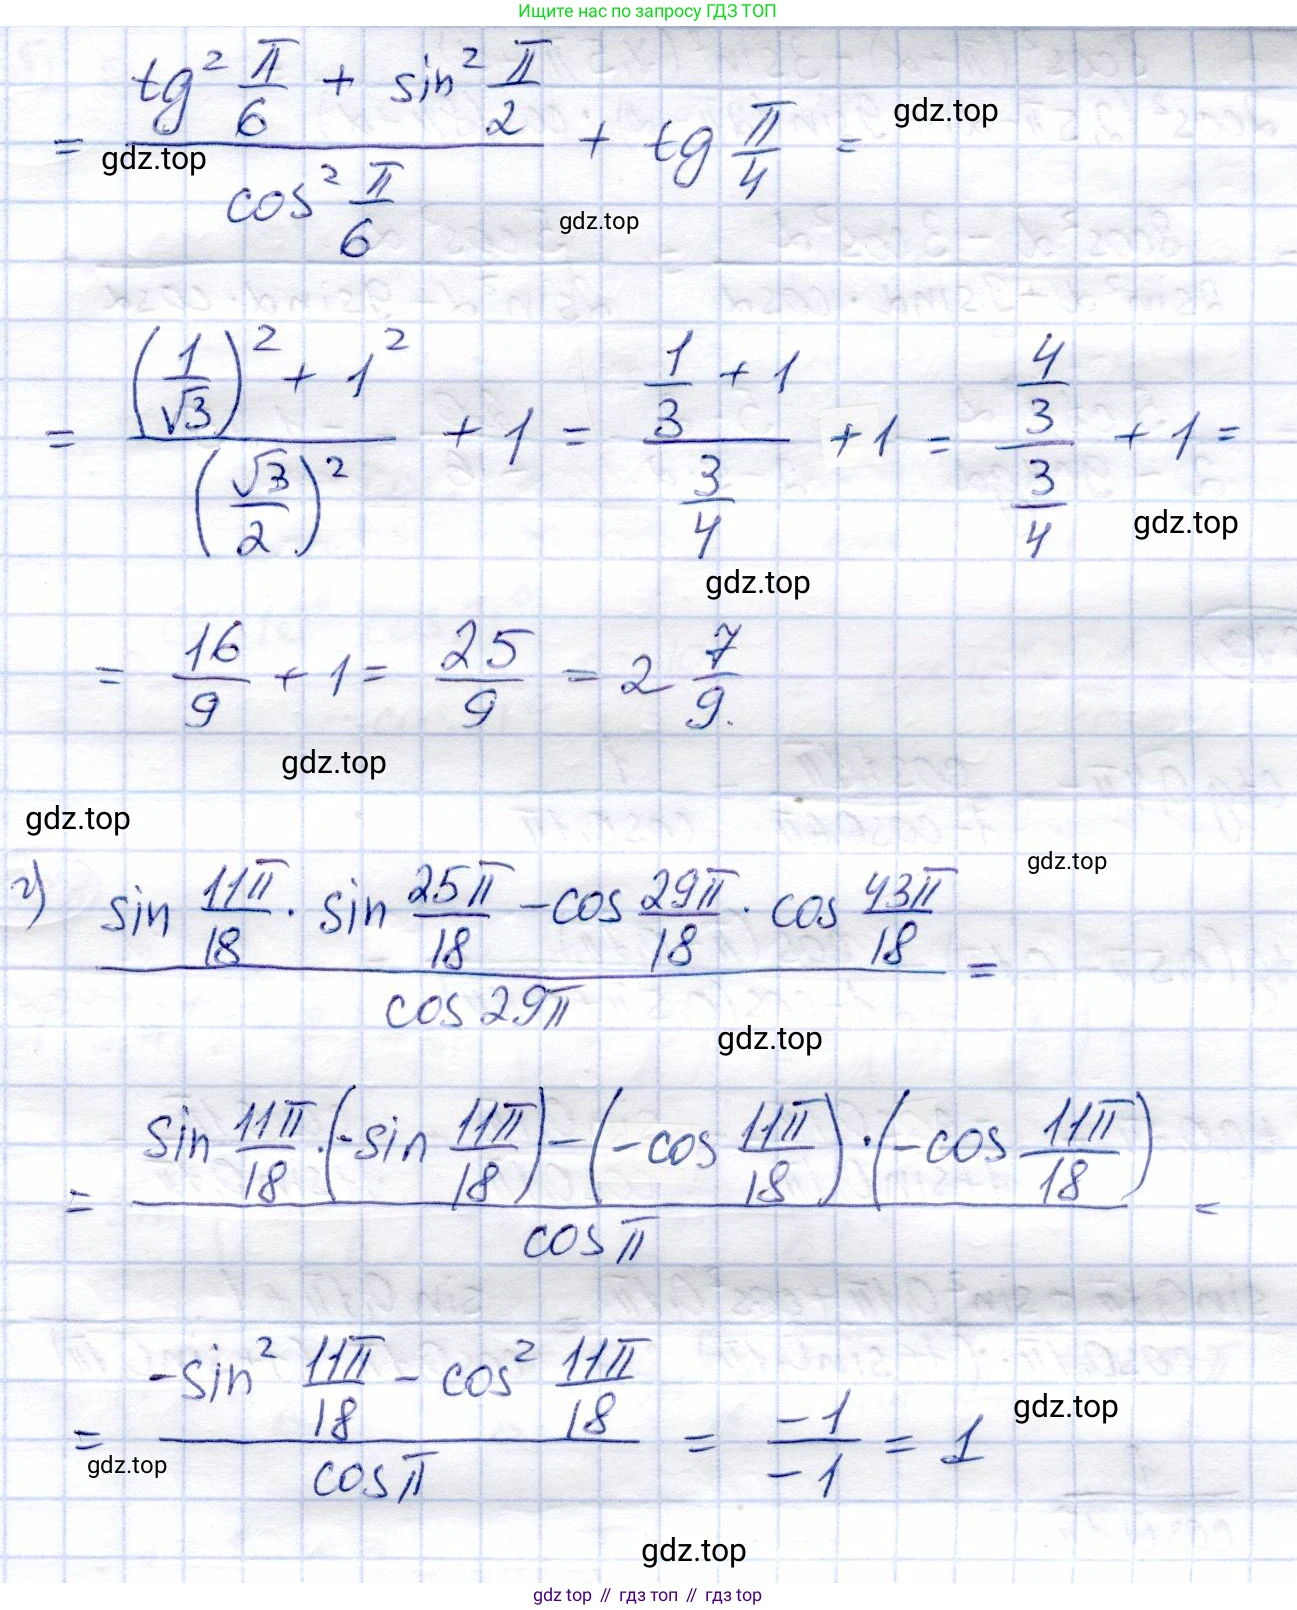 Ищите нас по запросу ГДЗ ТОП
= (tg² π/6 + sin² π/2) / (cos² π/6) + tg π/4 =
gdz.top
gdz.top
gdz.top
= ((1/√3)² + 1²) / (√3/2)² + 1 = (1/3 + 1) / (3/4) + 1 = (4/3) / (3/4) + 1 =
gdz.top
gdz.top
= 16/9 + 1 = 25/9 = 2 7/9.
gdz.top
gdz.top
gdz.top
г) (sin 11π/18 · sin 25π/18 - cos 29π/18 · cos 43π/18) / (cos 29π) =
gdz.top
= (sin 11π/18 · (-sin 11π/18) - (-cos 11π/18) · (-cos 11π/18)) / (cos π) =
= (-sin² 11π/18 - cos² 11π/18) / (cos π) = -1/-1 = 1
gdz.top
gdz.top
gdz.top
gdz top // гдз топ // гдз top